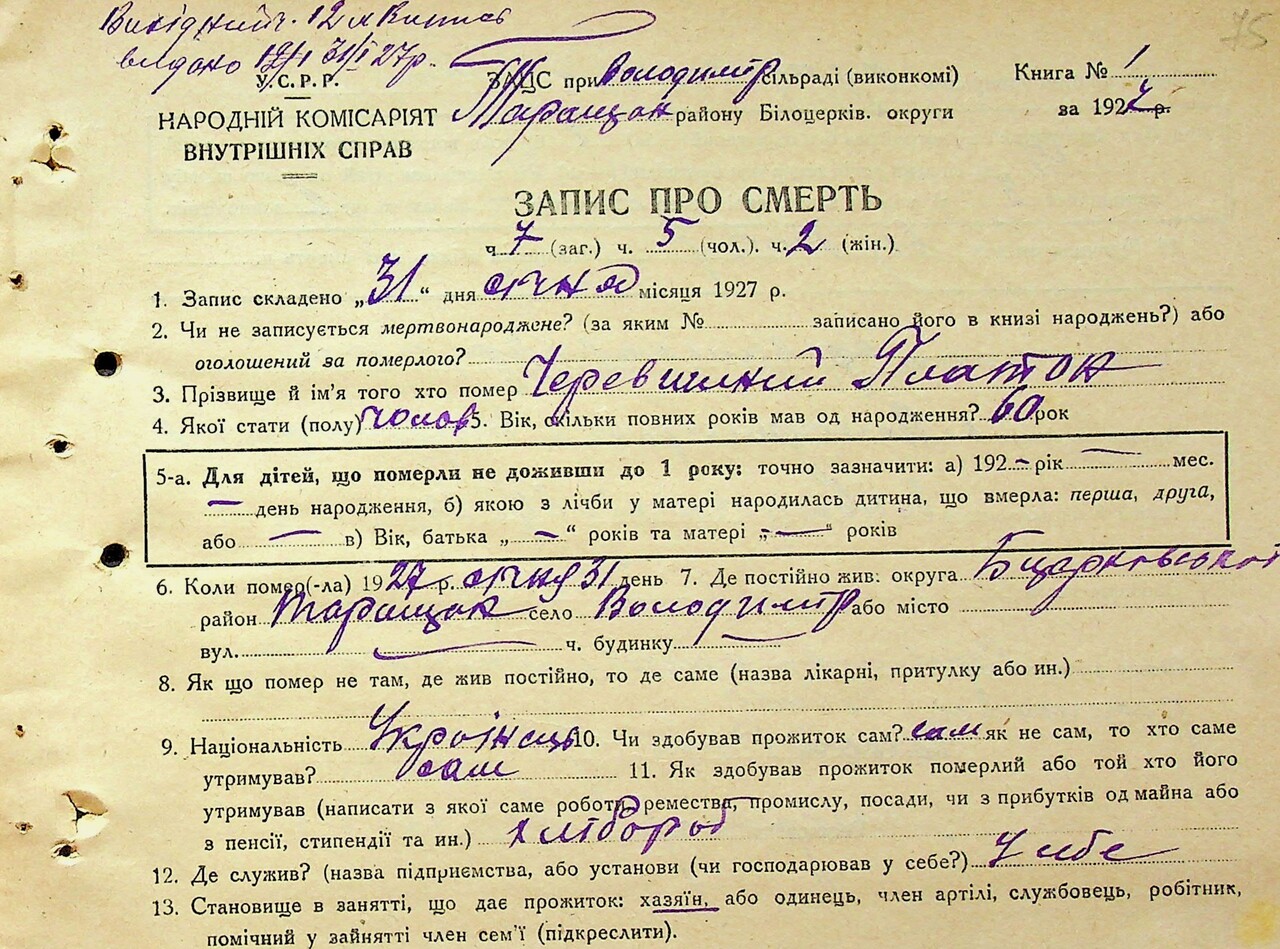 75
Вихідний ч. 12 и Випись
видано 31/I 27р.
У.С.Р.Р.
НАРОДНІЙ КОМІСАРІЯТ
ВНУТРІШНІХ СПРАВ
ЗАЦС при Володимір сільраді (виконкомі)
Таращан району Білоцерків. округи
Книга № 1
за 1927 р.
ЗАПИС ПРО СМЕРТЬ
ч. 7 (заг.) ч. 5 (чол.). ч. 2 (жін.)
1. Запис складено „31“ дня січня місяця 1927 р.
2. Чи не записується мертвонароджене? (за яким № записано його в книзі народжень?) або
оголошений за померлого?
3. Прізвище й ім'я того хто помер Черевицкий Платон
4. Якої стати (полу) чолов 5. Вік, скільки повних років мав од народження? 60 рок
5-а. Для дітей, що померли не доживши до 1 року: точно зазначити: а) 192 – рік — мес.
— день народження, б) якою з лічби у матері народилась дитина, що вмерла: перша, друга,
або — в) Вік, батька „ — “ років та матері „ — “ років
6. Коли помер(-ла) 1927 р. січня 31 день 7. Де постійно жив: округа Бцарковської
район Таращан село Володимір або місто
вул. — ч. будинку —
8. Як що помер не там, де жив постійно, то де саме (назва лікарні, притулку або ин.)
9. Національність Українець 10. Чи здобував прожиток сам? сам як не сам, то хто саме
утримував? сам 11. Як здобував прожиток померлий або той хто його
утримував (написати з якої саме роботи, ремества, промислу, посади, чи з прибутків од майна або
з пенсії, стипендії та ин.) хлібороб
12. Де служив? (назва підприємства, або установи (чи господарював у себе?) У себе
13. Становище в занятті, що дає прожиток: хазяїн, або одинець, член артілі, службовець, робітник,
помічний у зайнятті член сем'ї (підкреслити).